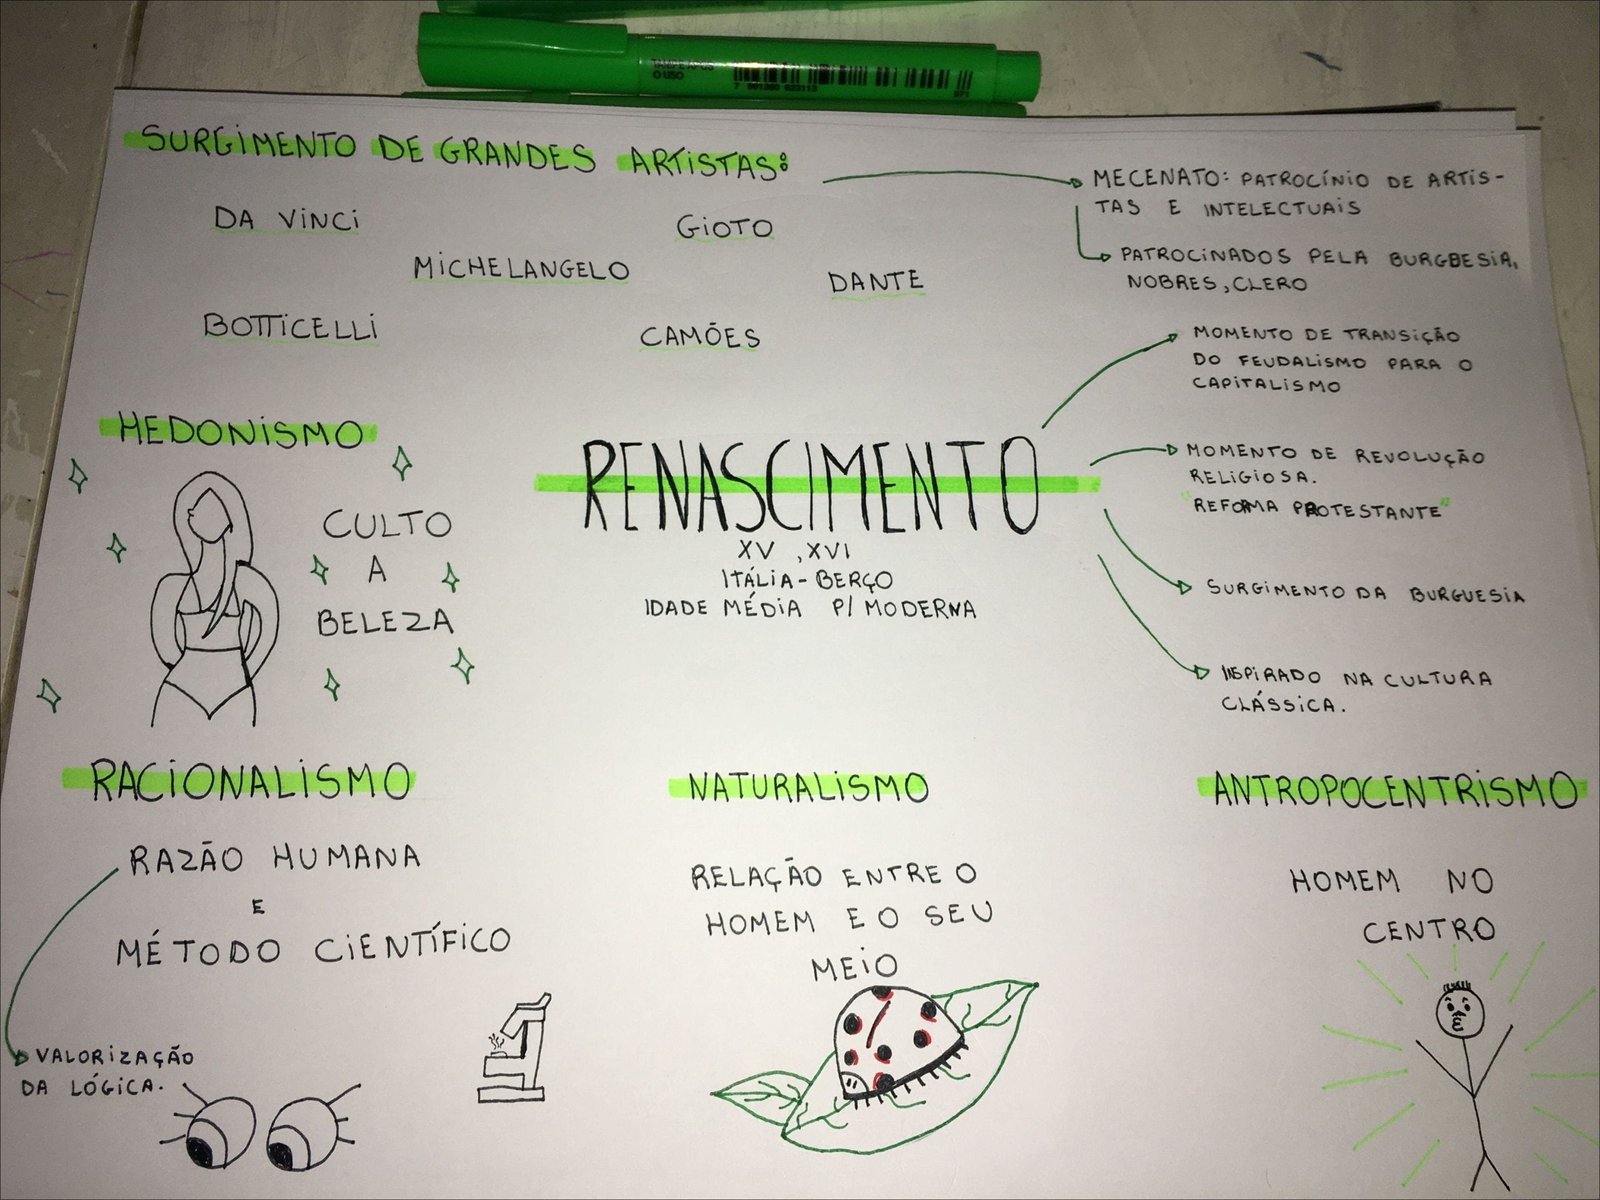 TAMPE APÓS
O USO
SURGIMENTO DE GRANDES ARTISTAS:
DA VINCI
GIOTO
MICHELANGELO
DANTE
BOTTICELLI
CAMÕES
MECENATO: PATROCÍNIO DE ARTIS-
TAS E INTELECTUAIS
PATROCINADOS PELA BURGBESIA,
NOBRES, CLERO
HEDONISMO
CULTO
A
BELEZA
RENASCIMENTO
XV, XVI
ITÁLIA - BERÇO
IDADE MÉDIA P/ MODERNA
MOMENTO DE TRANSIÇÃO
DO FEUDALISMO PARA O
CAPITALISMO
MOMENTO DE REVOLUÇÃO
RELIGIOSA.
"REFORMA PROTESTANTE"
SURGIMENTO DA BURGUESIA
INSPIRADO NA CULTURA
CLÁSSICA.
RACIONALISMO
RAZÃO HUMANA
E
MÉTODO CIENTÍFICO
VALORIZAÇÃO
DA LÓGICA.
NATURALISMO
RELAÇÃO ENTRE O
HOMEM E O SEU
MEIO
ANTROPOCENTRISMO
HOMEM NO
CENTRO